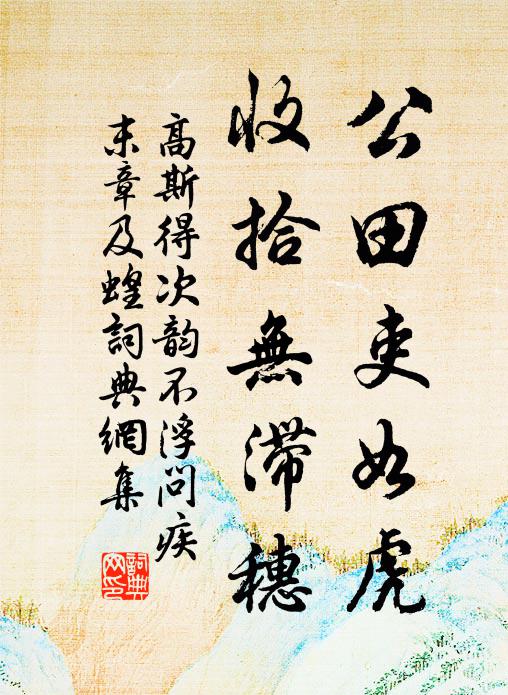 公田吏如虎
收拾無滯穗
高斯得次韵不浮問疾
末章及蝗詞典網集
詞典
网印